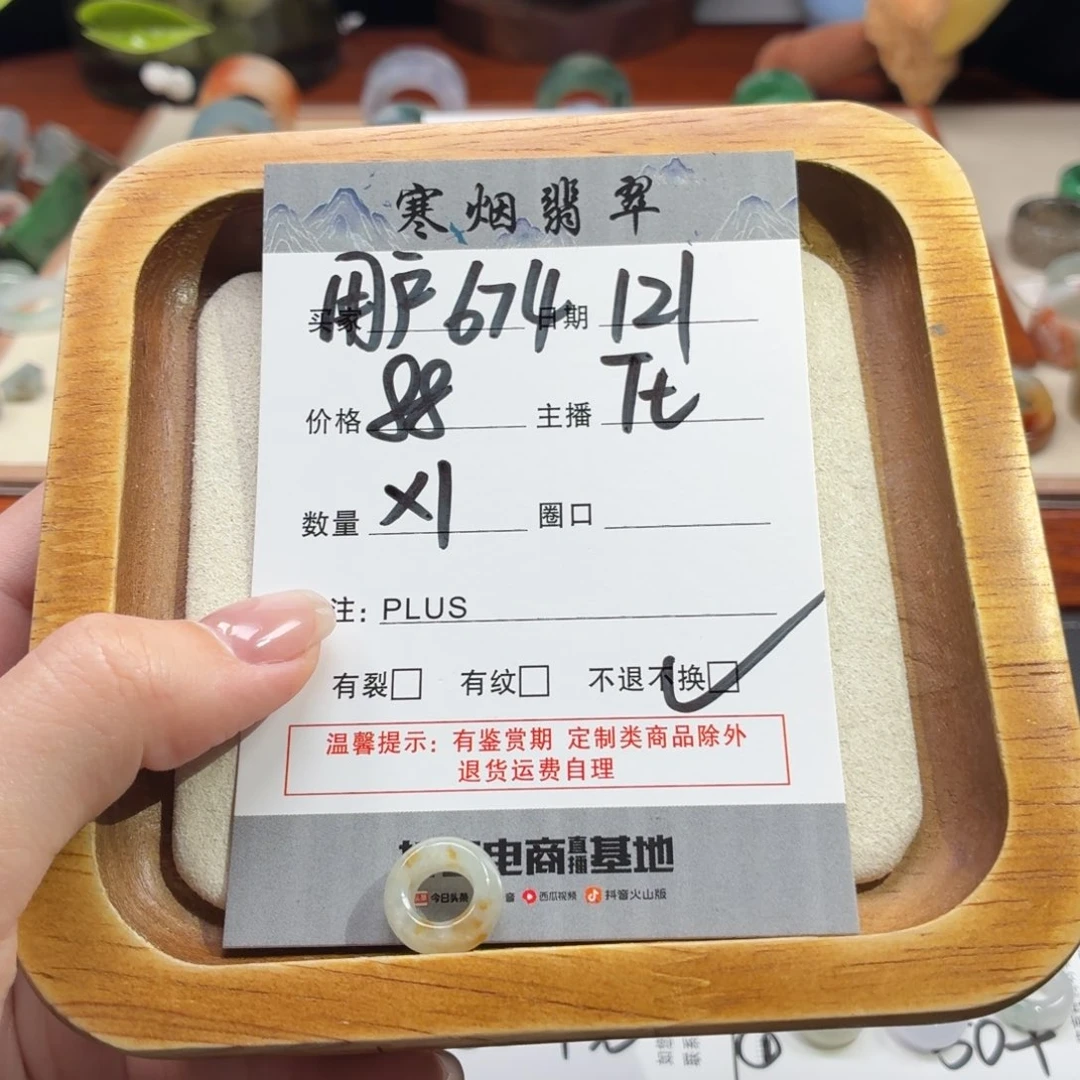 寒烟翡翠
买家 用户674 日期 121
价格 88 主播 Tt
数量 x1 圈口
注: PLUS
有裂□ 有纹□ 不退不换□
温馨提示: 有鉴赏期 定制类商品除外
退货运费自理
电商直播基地
今日头条 音 西瓜视频 抖音火山版